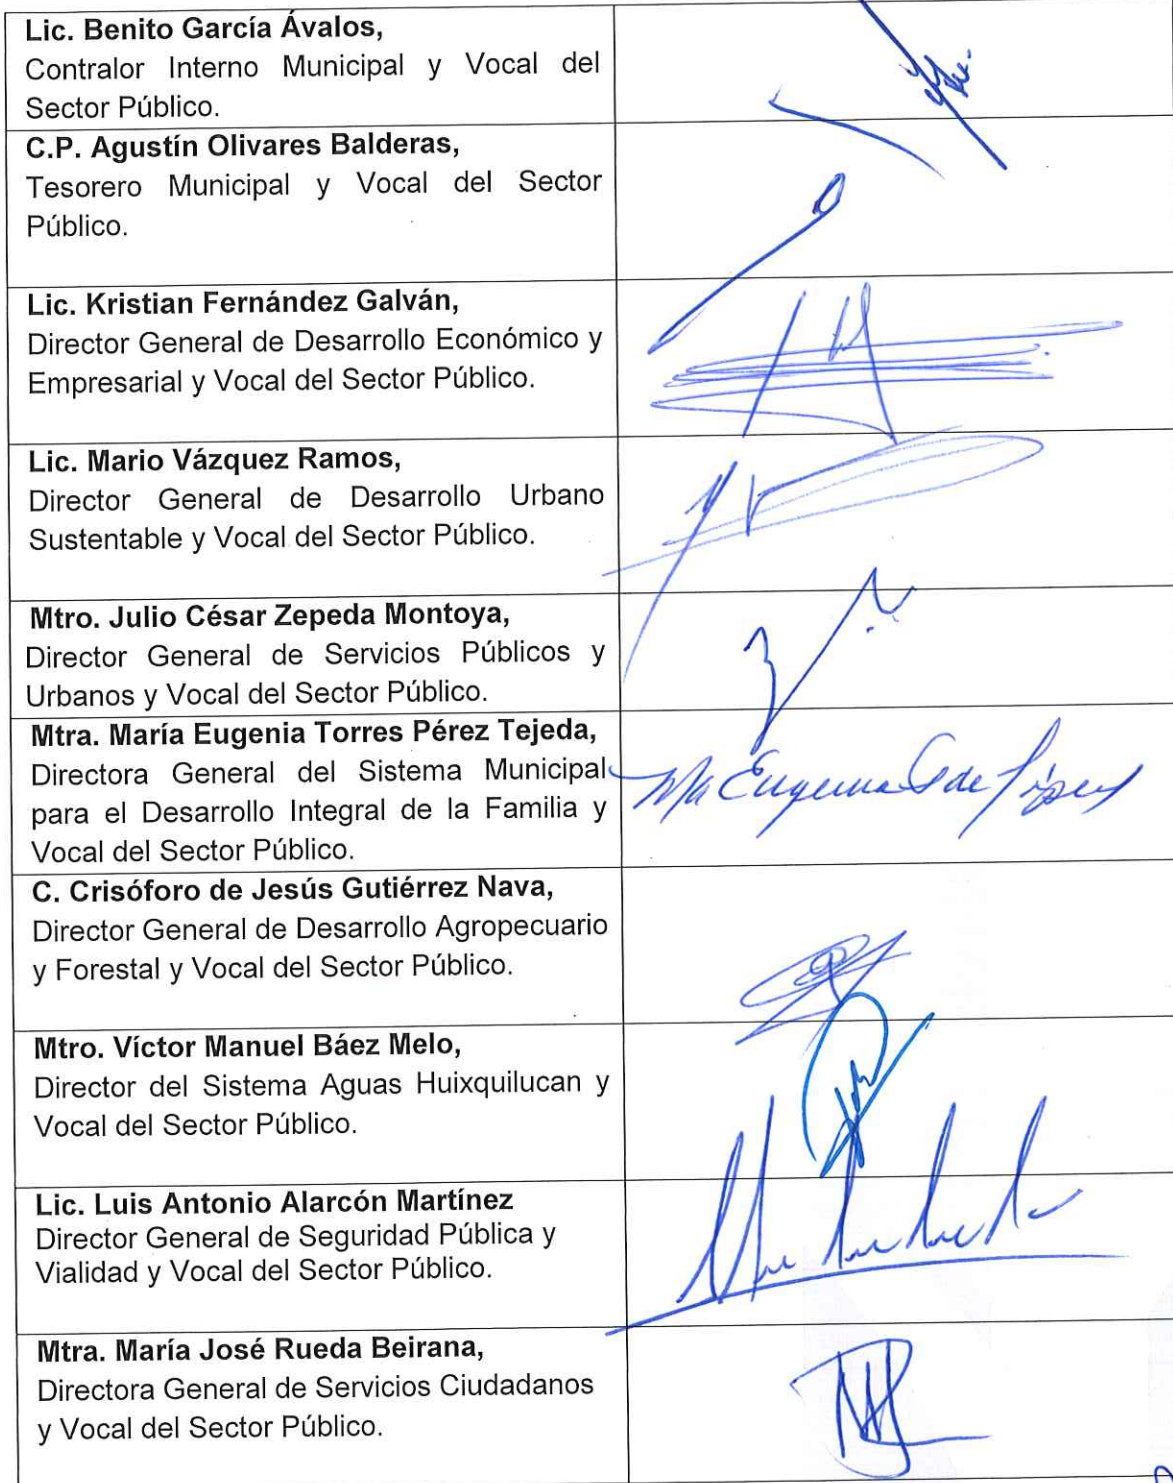 Lic. Benito García Ávalos,
Contralor Interno Municipal y Vocal del
Sector Público.
C.P. Agustín Olivares Balderas,
Tesorero Municipal y Vocal del Sector
Público.
Lic. Kristian Fernández Galván,
Director General de Desarrollo Económico y
Empresarial y Vocal del Sector Público.
Lic. Mario Vázquez Ramos,
Director General de Desarrollo Urbano
Sustentable y Vocal del Sector Público.
Mtro. Julio César Zepeda Montoya,
Director General de Servicios Públicos y
Urbanos y Vocal del Sector Público.
Mtra. María Eugenia Torres Pérez Tejeda,
Directora General del Sistema Municipal
para el Desarrollo Integral de la Familia y
Vocal del Sector Público.
Ma Eugenia
C. Crisóforo de Jesús Gutiérrez Nava,
Director General de Desarrollo Agropecuario
y Forestal y Vocal del Sector Público.
Mtro. Víctor Manuel Báez Melo,
Director del Sistema Aguas Huixquilucan y
Vocal del Sector Público.
Lic. Luis Antonio Alarcón Martínez
Director General de Seguridad Pública y
Vialidad y Vocal del Sector Público.
Mtra. María José Rueda Beirana,
Directora General de Servicios Ciudadanos
y Vocal del Sector Público.